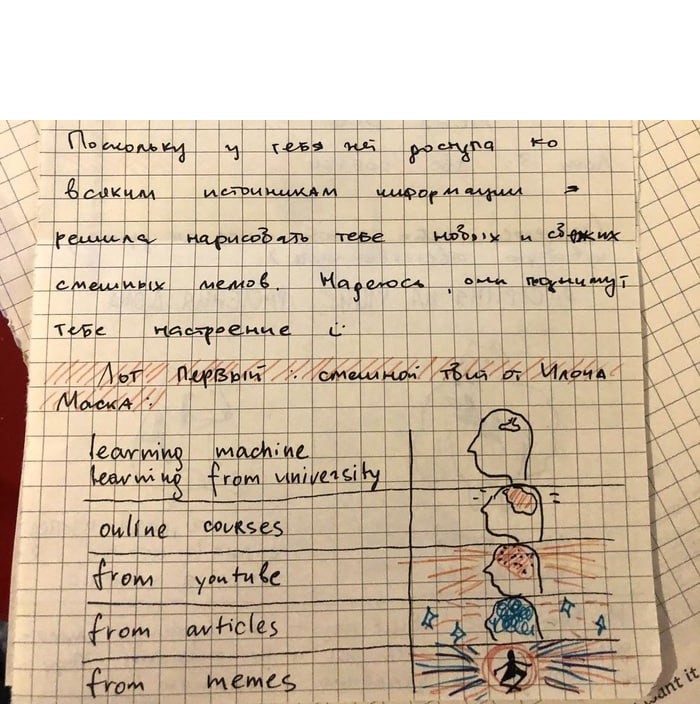 Поскольку у тебя нет доступа ко
всяким источникам информации -
решила нарисовать тебе новых и свежих
смешных мемов. Надеюсь, они поднимут
тебе настроение :)
Лот первый : смешной твит от Илона
Маска :
learning machine
learning from university
online courses
from youtube
from articles
from memes
ant it